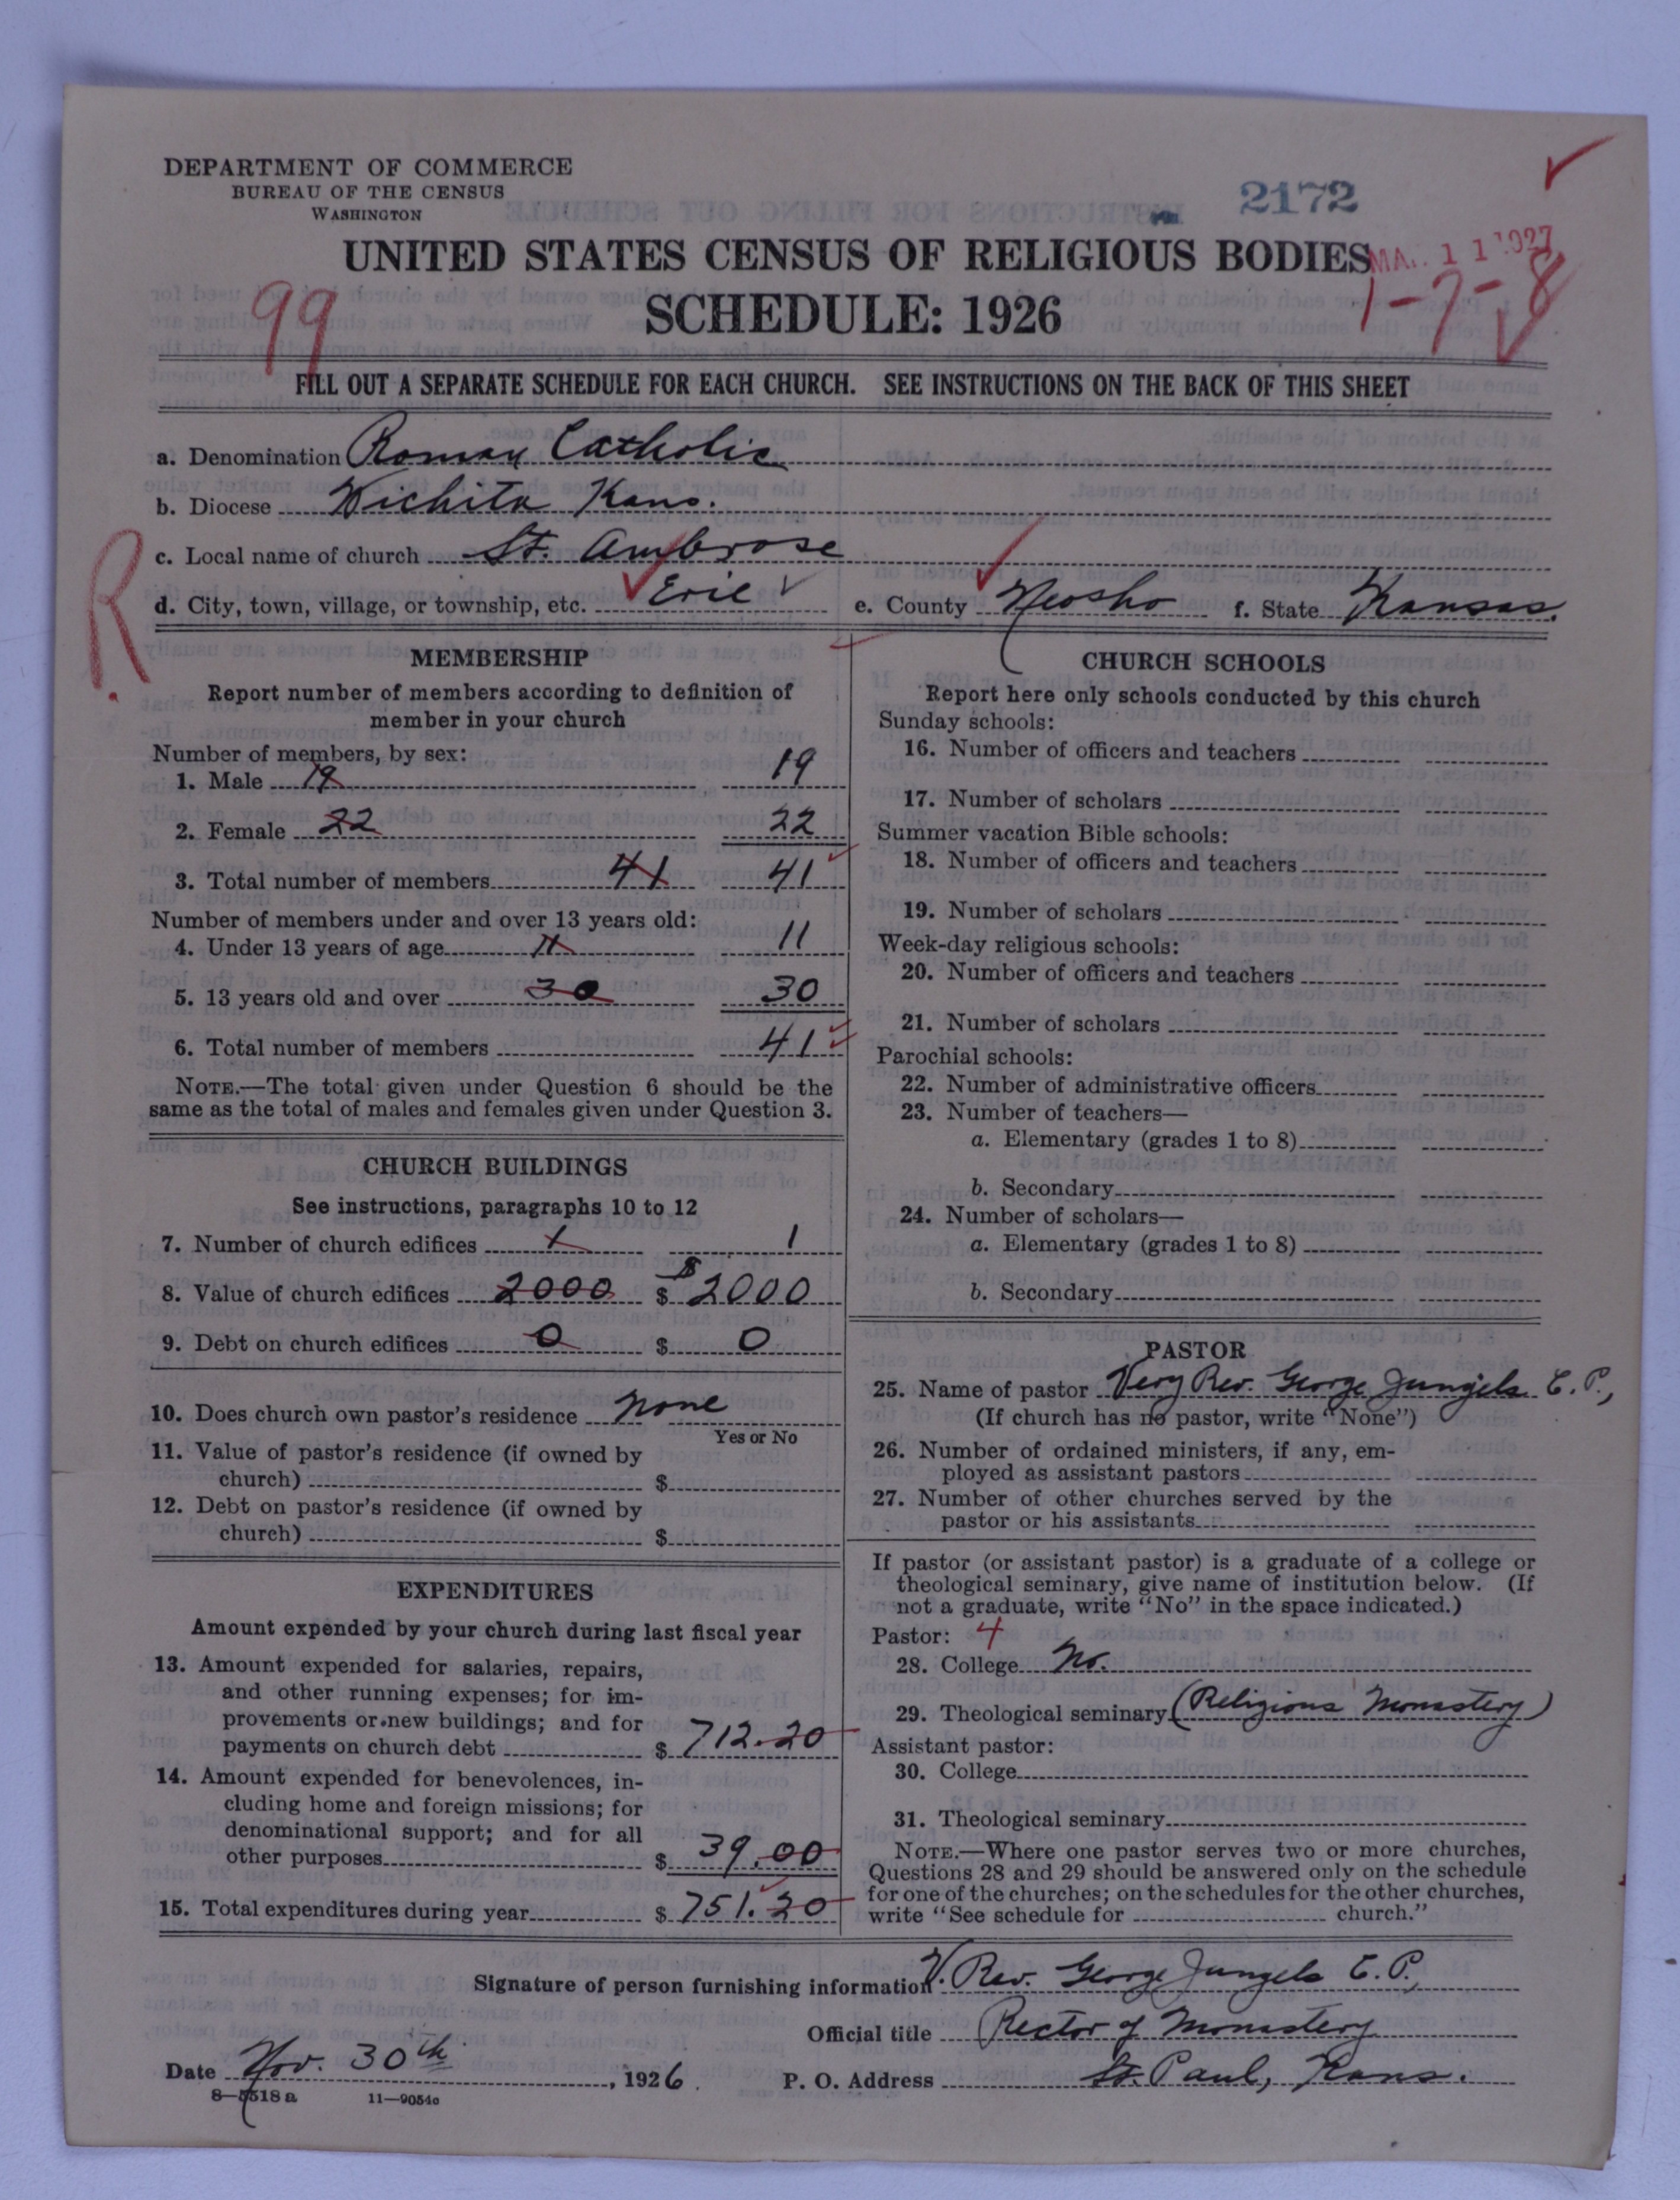 DEPARTMENT OF COMMERCE
BUREAU OF THE CENSUS
WASHINGTON
2172
UNITED STATES CENSUS OF RELIGIOUS BODIES
MA. 11 1927
SCHEDULE: 1926
99
1-7-8
FILL OUT A SEPARATE SCHEDULE FOR EACH CHURCH. SEE INSTRUCTIONS ON THE BACK OF THIS SHEET
a. Denomination Roman Catholic
b. Diocese Wichita Kans.
c. Local name of church St. Ambrose
R.
d. City, town, village, or township, etc. Erie e. County Neosho f. State Kansas.
MEMBERSHIP
Report number of members according to definition of
member in your church
Number of members, by sex:
1. Male 19 19
2. Female 22 22
3. Total number of members 41 41
Number of members under and over 13 years old:
4. Under 13 years of age 11 11
5. 13 years old and over 30 30
6. Total number of members 41
NOTE.—The total given under Question 6 should be the
same as the total of males and females given under Question 3.
CHURCH BUILDINGS
See instructions, paragraphs 10 to 12
7. Number of church edifices 1 1
8. Value of church edifices 2000 $ $2000
9. Debt on church edifices 0 $ 0
10. Does church own pastor's residence none
Yes or No
11. Value of pastor's residence (if owned by
church) $
12. Debt on pastor's residence (if owned by
church) $
EXPENDITURES
Amount expended by your church during last fiscal year
13. Amount expended for salaries, repairs,
and other running expenses; for im-
provements or new buildings; and for
payments on church debt $ 712.20
14. Amount expended for benevolences, in-
cluding home and foreign missions; for
denominational support; and for all
other purposes $ 39.00
15. Total expenditures during year $ 751.20
CHURCH SCHOOLS
Report here only schools conducted by this church
Sunday schools:
16. Number of officers and teachers
17. Number of scholars
Summer vacation Bible schools:
18. Number of officers and teachers
19. Number of scholars
Week-day religious schools:
20. Number of officers and teachers
21. Number of scholars
Parochial schools:
22. Number of administrative officers
23. Number of teachers—
a. Elementary (grades 1 to 8)
b. Secondary
24. Number of scholars—
a. Elementary (grades 1 to 8)
b. Secondary
PASTOR
25. Name of pastor Very Rev. George Jungels C.P.,
(If church has no pastor, write "None")
26. Number of ordained ministers, if any, em-
ployed as assistant pastors
27. Number of other churches served by the
pastor or his assistants
If pastor (or assistant pastor) is a graduate of a college or
theological seminary, give name of institution below. (If
not a graduate, write "No" in the space indicated.)
Pastor: 4
28. College No.
29. Theological seminary (Religious Monastery)
Assistant pastor:
30. College
31. Theological seminary
NOTE.—Where one pastor serves two or more churches,
Questions 28 and 29 should be answered only on the schedule
for one of the churches; on the schedules for the other churches,
write "See schedule for church."
Signature of person furnishing information V. Rev. George Jungels C.P.,
Official title Rector of Monastery
Date Nov. 30th, 1926.
P. O. Address St. Paul, Kans.
8—5518 a 11—9054c